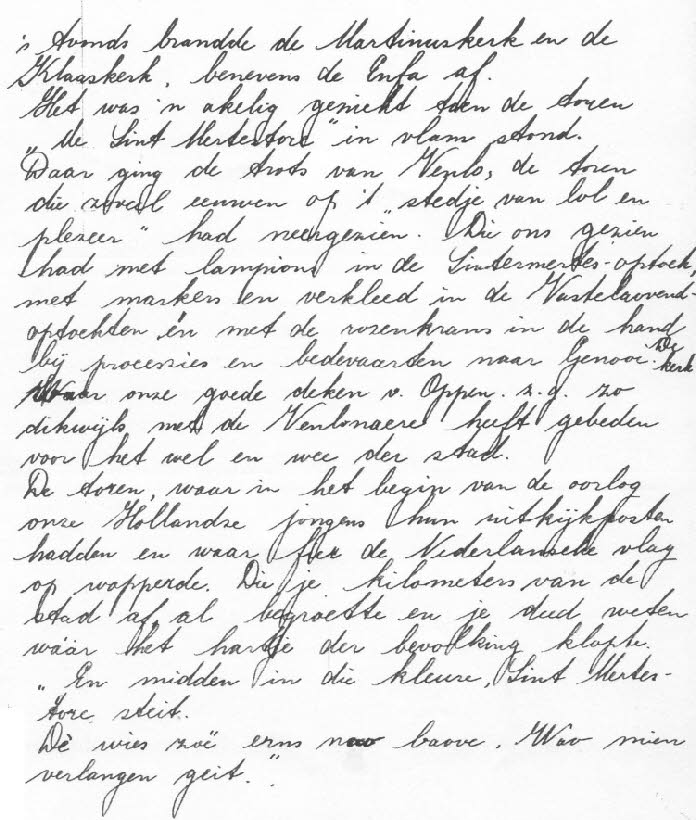 's Avonds brandde de Martinuskerk en de
Klaaskerk, benevens de Enfa af.
Het was 'n akelig gezicht toen de toren
„de Sint Mertestore" in vlam stond.
Daar ging de trots van Venlo, de toren
die zoveel eeuwen op 't „stedje van lol en
plezeer" had neergezien. Die ons gezien
had met lampions in de Sintermertes-optocht,
met maskers en verkleed in de Vastelaovend-
optochten én met de rozenkrans in de hand
bij processies en bedevaarten naar Genooi. De kerk
waar onze goede deken v. Oppen. z.g. zo
dikwijls met de Venlonaere heeft gebeden
voor het wel en wee der stad.
De toren, waar in het begin van de oorlog
onze Hollandse jongens hun uitkijkposten
hadden en waar fier de Nederlansche vlag
op wapperde. Die je kilometers van de
stad af al begroette en je deed weten
wáár het hartje der bevolking klopte.
„En midden in die kleure, Sint Mertes-
tore steit.
Dè wies zoë erns nao baove. Wao mien
verlangen geit."